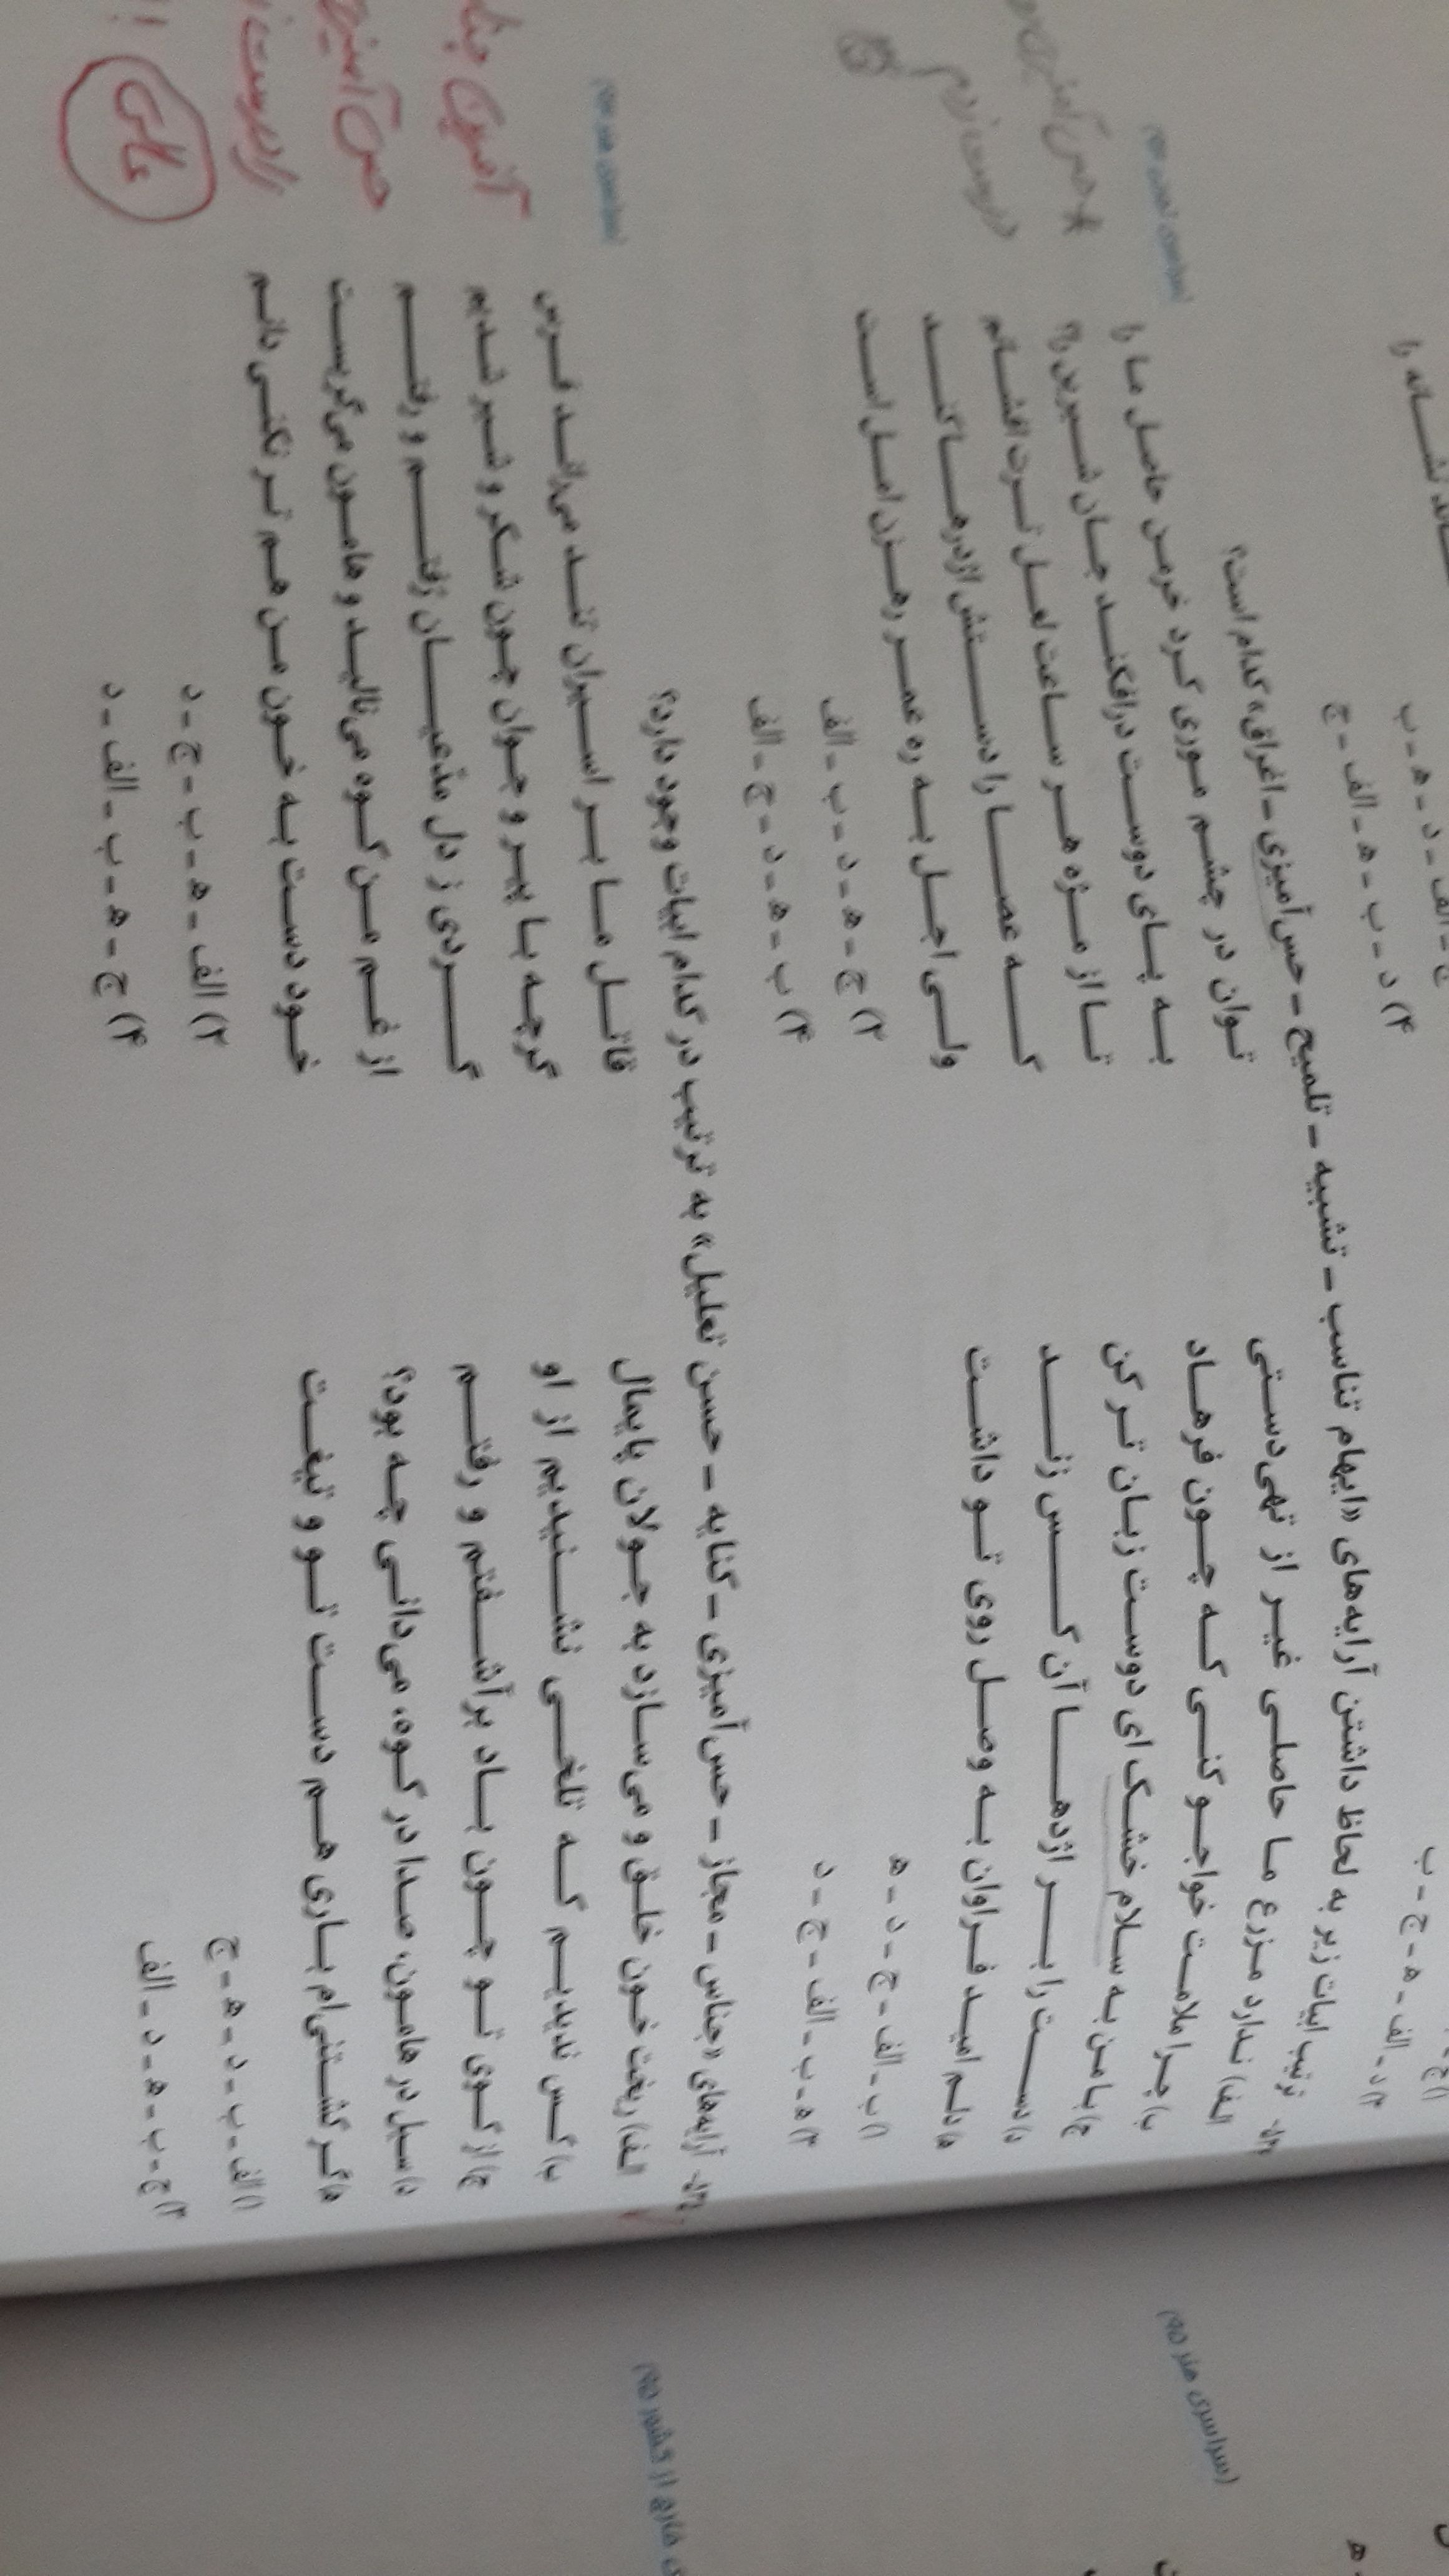 ـاند نشانه را
الف - د - ه - ب
۴) د - ب - ه - الف - ج
ه - ج - ب
۳) د - الف
ترتیب ابیات زیر به لحاظ داشتن آرایه‌های «ایهام تناسب - تشبیه - تلمیح - حس‌آمیزی - اغراق» کدام است؟
الف) ندارد مزرع ما حاصلی غیر از تهی‌دستی توان در چشم موری کرد خرمن حاصل ما را
ب) چرا ملامت خواجو کنی که چون فرهاد به پای دوست درافکند جان شیرین را؟
ج) با من به سلام خشک ای دوست زبان تر کن تا از مژه هر ساعت لعل ترت افشانم
د) دست را بر اژدها آن کس زند که عصا را دستش اژدرها کند
ه) دلم امید فراوان به وصل روی تو داشت ولی اجل به ره عمر رهزن امل است
۱) ب - الف - ج - د - ه
۲) ج - ه - د - ب - الف
۳) ه - ب - الف - ج - د
۴) ب - ه - د - ج - الف
* حس آمیزی
درست زدم
آرایه‌های «جناس - مجاز - حس‌آمیزی - کنایه - حسن تعلیل» به ترتیب در کدام ابیات وجود دارد؟
الف) ریخت خون خلق و می‌سازد به جولان پایمال قاتل ما بر اسیران تند می‌راند فرس
ب) کس ندیدیم که تلخی نشنیدیم از او گرچه با پیر و جوان چون شکر و شیر شدیم
ج) از کوی تو چون باد برآشفتم و رفتم گردی ز دل مدعیان رفتم و رفتم
د) سیل در هامون، صدا در کوه، می‌دانی چه بود؟ از غم من کوه می‌نالید و هامون می‌گریست
ه) گر کشتنی‌ام باری هم دست تو و تیغت خود دست به خون من هم تر نکنی دانم
۱) الف - ب - د - ه - ج
۲) الف - ه - ب - ج - د
۳) ج - ب - ه - د - الف
۴) ج - ه - ب - الف - د
حس آمیزی
عالی
(سراسری هنر ۹۵)
خارج از کشور ۹۵